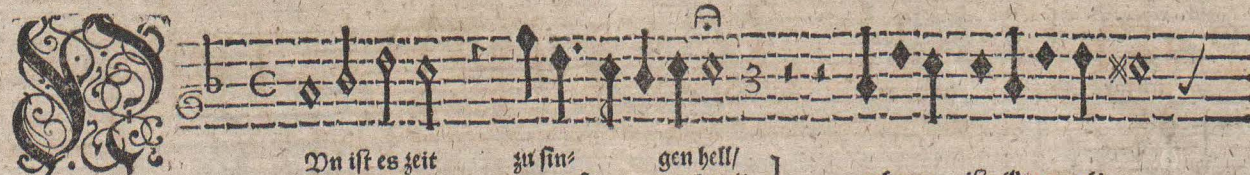 NVn ist es zeit zu sin⸗ gen hell/